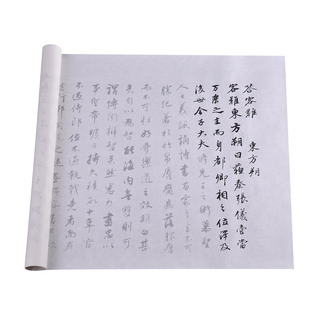 答客難
東方朔
客難東方朔曰蘇秦張儀壹當
万乘之主而身都卿相之位澤及
後世今子大夫修先王之術慕聖
人之義諷誦詩書百家之言不可勝
記著於竹帛唇腐齒落服膺
而不可釋好學樂道之效明白甚
矣自以為智能海內無雙則可
謂博聞辯智矣然悉力盡忠以
事聖帝曠日持久積數十年官
不過侍郎位不過執戟意者尚有